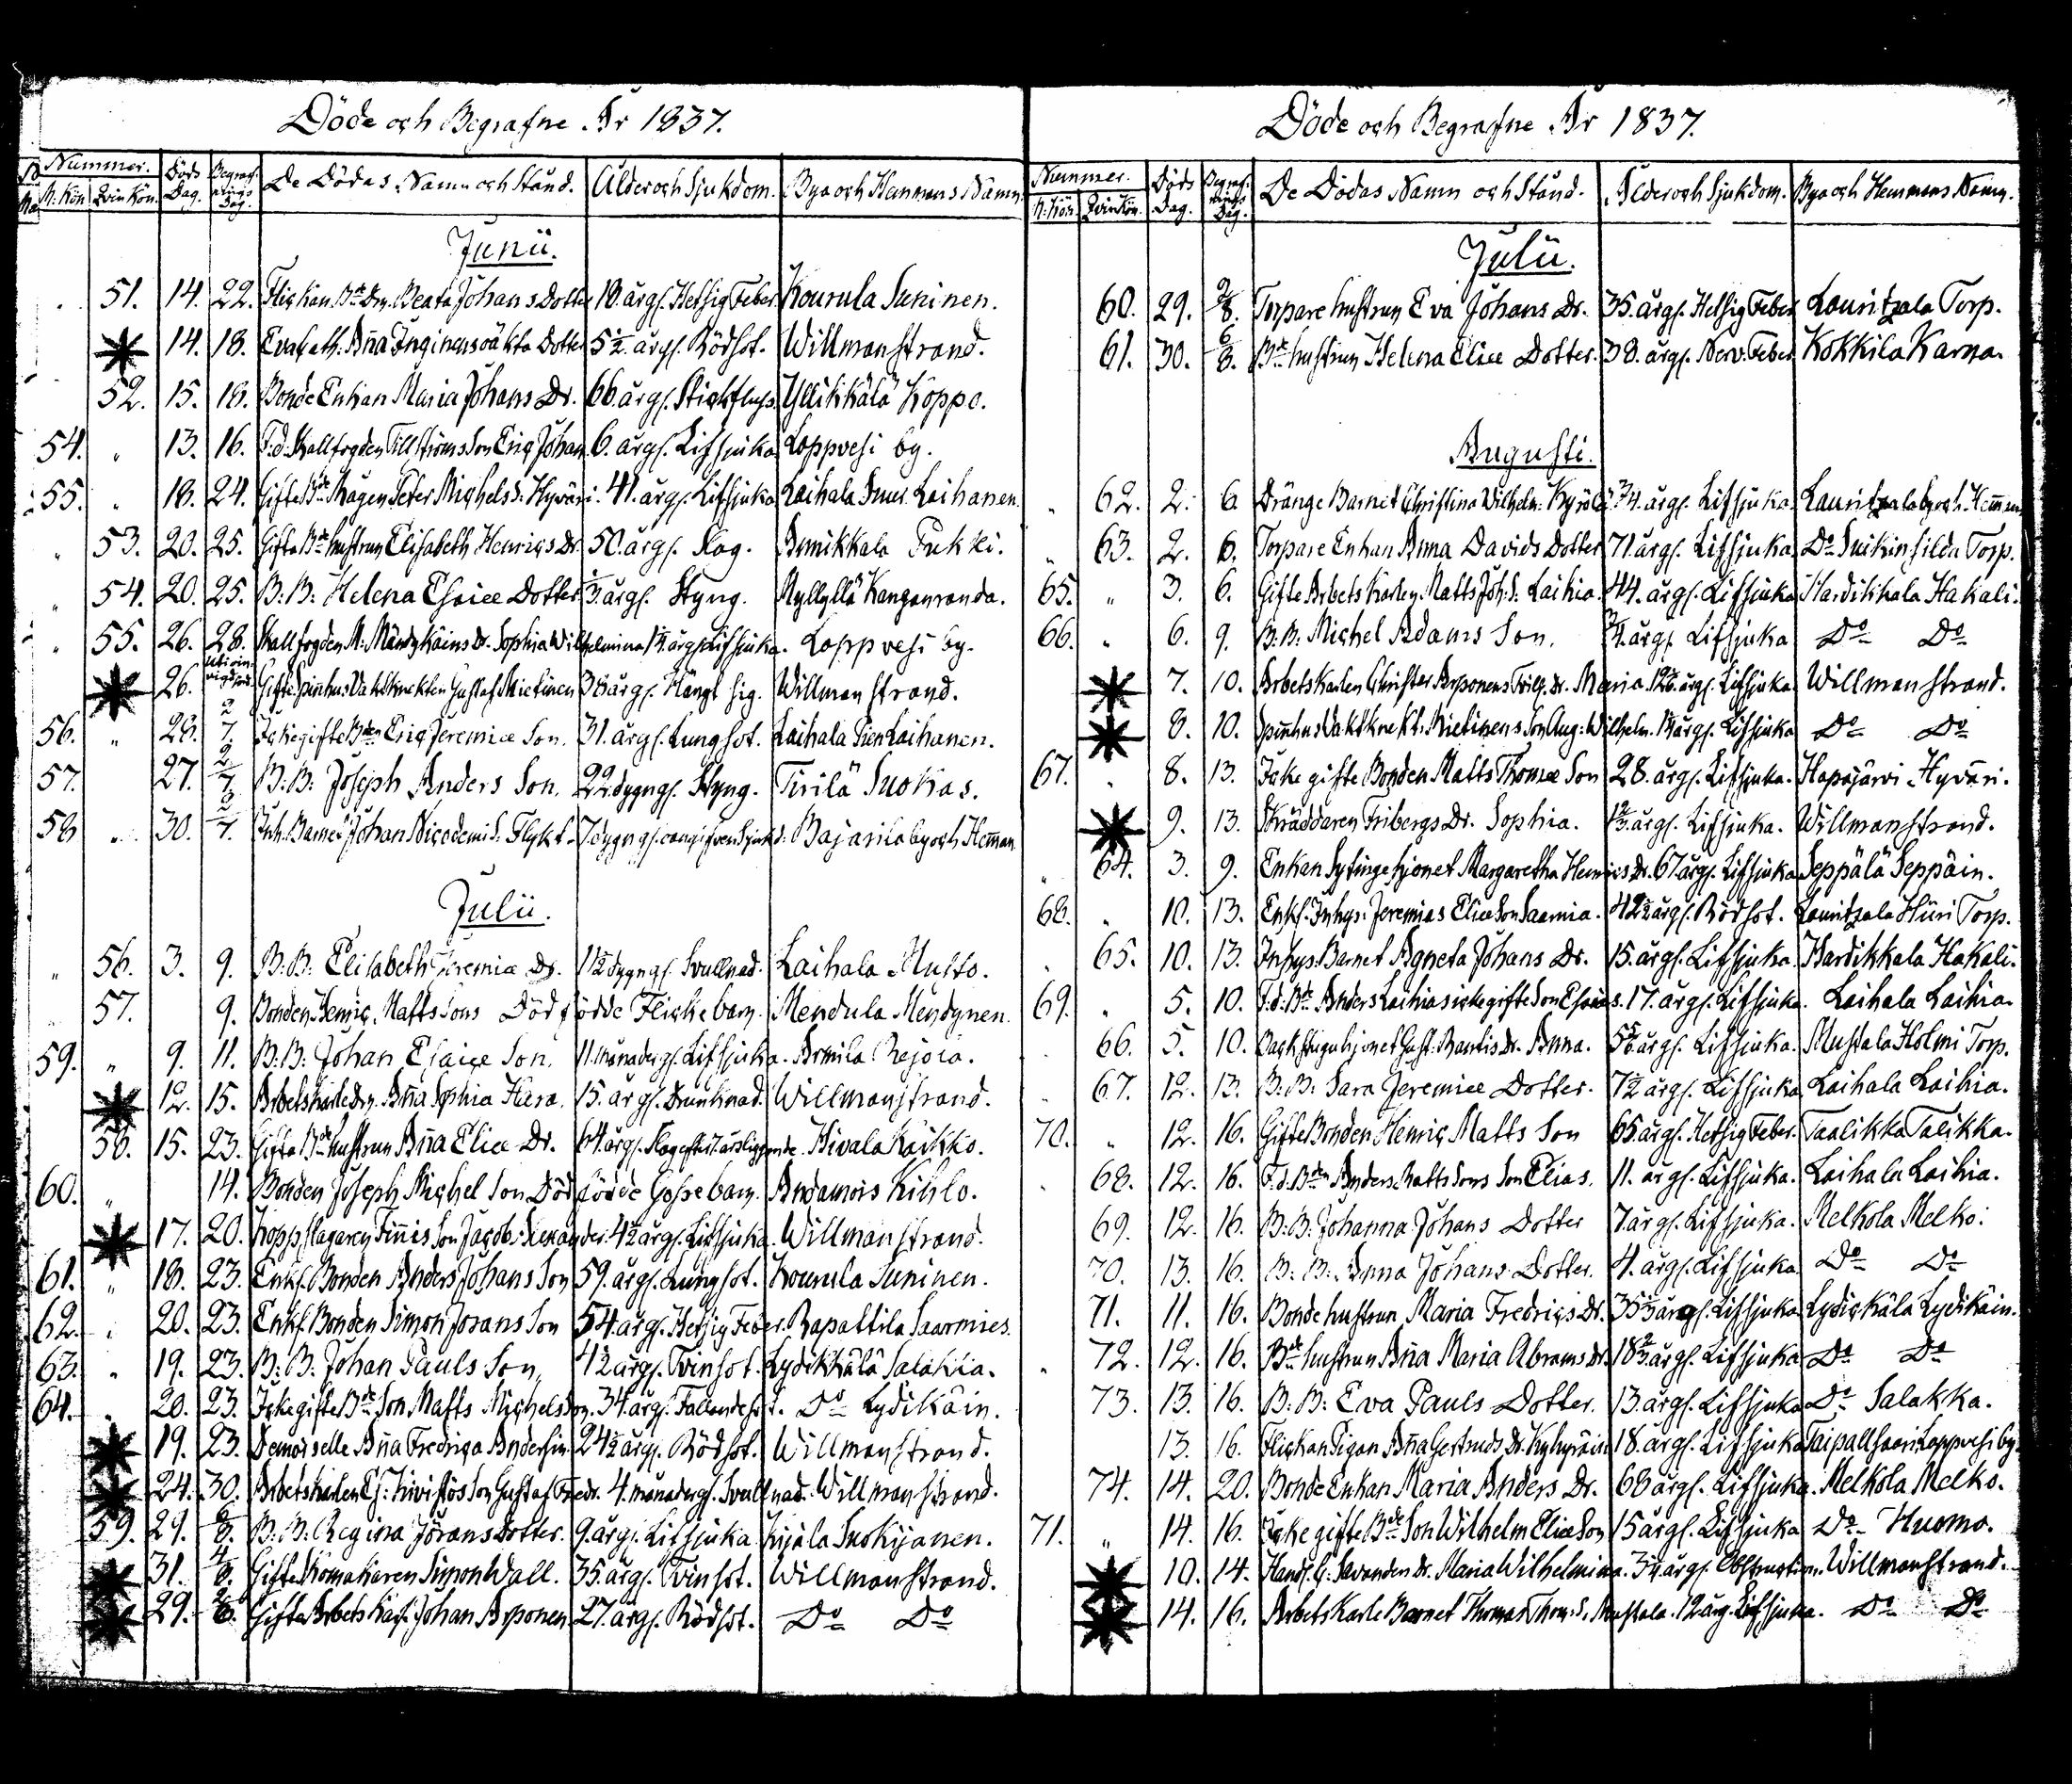 Döde och Begrafne År 1837.
Nummer. Döds Dag. Begrafnings Dag. De Dödas Namn och Stånd. Ålder och Sjukdom. Bya och Hemmans Namn.
M: Kön. Qvin Kön.
Junii.
51. 14. 22. Flickan Bde Dr. Beata Johans Dotter 18. årgl. Hetsig Feber Kourula Suninen.
14. 18. Eva fatt: Aña Inginens oäkta Dotter 5½ årgl. Rödsot. Willmanstrand.
52. 15. 18. Bonde Enkan Maria Johans Dr. 66. årgl. Stickfluss. Yllikkälä Koppo.
54. „ 13. 16. F.d. Skallfogden Tillströms Son Eric Johan 6. årgl. Lifsjuka Loppvesi by.
55. „ 18. 24. Gifte Bde Mågen Peter Michels S. Hyväri. 41. årgl. Lifsjuka Laihala Laihanen.
„ 53. 20. 25. Gifta Bde hustrun Elisabeth Henrics Dr. 50. årgl. Slag. Armikkala Pukki.
„ 54. 20. 25. B: B: Helena Esaiæ Dotter ½ årgl. Styng. Myllyllä Kangasranda.
„ 55. 26. 28. Skallfogden M: Mändykäins Dr. Sophia Wilhelmina 1¼ årgl. Lifsjuka. Loppvesi by.
26. Gifte Spinhus Vaktknekten Gustaf Mietinen 38 årgl. Hängt sig. Willmanstrand.
56. „ 28. 2/7. Icke gifte Bden Eric Jeremiæ Son. 31. årgl. Lungsot. Laihala Pien Laihanen.
57. 27. 2/7. B: B: Joseph Anders Son. 22. dygngl. Styng. Tirilä Suokas.
58 „ 30. 2/7. Inh. Barnet Johan Nicodemi S: Flykt. 7. dygngl. oangifven Sjukd: Bajarila by och Hemman.
Julii.
„ 56. 3. 9. B: B: Elisabeth Jeremiæ Dr. 1½ dygngl. Svullnad. Laihala Musto.
57. 9. Bonden Henric Matts Sons Dödfödde Flickebarn. Mendula Mendynen.
59. „ 9. 11. B: B: Johan Esaiæ Son. 11. månadergl. Lifsjuka. Armila Rajoia.
12. 15. Arbetskarle Dr. Aña Sophia Hara. 15. årgl. Drunknad. Willmanstrand.
58. 15. 23. Gifta Bde hustrun Aña Eliæ Dr. 64. årgl. Slag efter 7. årsliggande. Hivala Kaikko.
60. „ 14. Bonden Joseph Michel Son Dödfödde Gossebarn. Andamois Kihlo.
17. 20. Kopparslagaren Finnis Son Jacob Alexander. 4½ årgl. Lifsjuka. Willmanstrand.
61. „ 18. 23. Enkl. Bonden Anders Johans Son 59. årgl. Lungsot. Kourula Suninen.
62. „ 20. 23. Enkl. Bonden Simon Jörans Son 54. årgl. Hetsig Feber. Rapattila Saarmies.
63. „ 19. 23. B: B: Johan Pauls Son, 4½ årgl. Tvinsot. Lydikkälä Salakka.
64. „ 20. 23. Icke gifte Bde Son Matts Michels Son. 34. årgl. Fallandesot. Do Lydikäin.
19. 23. Demoiselle Aña Fredrica Andersin 24½ årgl. Rödsot. Willmanstrand.
24. 30. Arbetskarlen Es: Kivistös Son Gustaf Fredr. 4. månadergl. Svullnad. Willmanstrand.
59. 29. 6/8. B: B: Regina Jörans Dotter. 9. årgl. Lifsjuka Kijala Suokijanen.
31. 4/8. Gifte Komakaren Simon Wall. 35. årgl. Tvinsot. Willmanstrand.
29. 2/8. Gifte Arbets Karl. Johan Arponen 27. årgl. Rödsot. Do Do
Döde och Begrafne År 1837.
Nummer. Döds Dag. Begrafnings Dag. De Dödas Namn och Stånd. Ålder och Sjukdom. Bya och Hemmans Namn.
M: Kön. Qvin Kön.
Julii.
60. 29. 2/8. Torpare hustrun Eva Johans Dr. 35. årgl. Hetsig Feber Lauritzala Torp.
61. 30. 6/8. Bde hustrun Helena Eliæ Dotter. 38. årgl. Nerv. Feber Kokkila Karna.
Augusti.
„ 62. 2. 6. Dränge Barnet Christina Wilhelm: Kyrölä ¾. årgl. Lifsjuka Lauritzala by och Hemman
„ 63. 2. 6. Torpare Enkan Anna Davids Dotter 71 årgl. Lifsjuka Do Torp.
65. „ 3. 6. Gifte Arbets Karlen Matts Joh: S. Laikia. 44. årgl. Lifsjuka Hardikkala Hakali.
66. „ 6. 9. B: B: Michel Adams Son. ¾. årgl. Lifsjuka Do Do
7. 10. Arbetskarlen Christer Arponens Dr. Maria. årgl. Lifsjuka Willmanstrand.
8. 10. Spinhus Vaktknekt. Mietinens Son Aug: Wilhelm. 1¼ årgl. Lifsjuka Do Do
67. „ 8. 13. Icke gifte Bonden Matts Thomæ Son 28. årgl. Lifsjuka. Hapajärvi Hyväri.
9. 13. Skräddaren Fribergs Dr. Sophia. 1⅔. årgl. Lifsjuka. Willmanstrand.
„ 64. 3. 9. Enkan Sytingehjonet Margaretha Henrics Dr. 67 årgl. Lifsjuka Seppälä Seppäin.
68. „ 10. 13. Enkl. Inhys: Jeremias Eliæ Son Saamia. 42½ årgl. Rödsot. Lauritzala Hiiri Torp.
„ 65. 10. 13. Inhys. Barnet Agneta Johans Dr. 15. årgl. Lifsjuka. Hardikkala Hakali.
69. „ 5. 10. F.d. Bde Anders Laihias icke gifte Son Esaias. 17. årgl. Lifsjuka. Laihala Laihia.
„ 66. 5. 10. Backstuguhjonet Gust. Rautis Dr. Anna. 5⅚. årgl. Lifsjuka. Mustala Holmi Torp.
„ 67. 12. 13. B: B: Sara Jeremiæ Dotter. 7½ årgl. Lifsjuka Laihala Laihia.
70. „ 12. 16. Gifte Bonden Henric Matts Son 65. årgl. Hetsig Feber. Taalikka Talikka.
„ 68. 12. 16. F.d. Bden Anders Matts Sons Son Elias. 11. årgl. Lifsjuka. Laihala Laihia.
69. 12. 16. B: B: Johanna Johans Dotter 7. årgl. Lifsjuka. Melkola Melko.
70. 13. 16. B: B: Anna Johans Dotter. 4. årgl. Lifsjuka Do Do
71. 11. 16. Bonde hustrun Maria Fredrics Dr. 35⅓ årgl. Lifsjuka Lydickälä Lydikäin.
„ 72. 12. 16. Bde hustrun Aña Maria Abrams Dr. 18⅔. årgl. Lifsjuka Do Do
73. 13. 16. B: B: Eva Pauls Dotter. 13. årgl. Lifsjuka Do Salakka.
13. 16. Flickan Pigan Aña Gertruds Dr. Kyhyräin 18. årgl. Lifsjuka Taipalsaari Loppvesi by.
74. 14. 20. Bonde Enkan Maria Anders Dr. 68 årgl. Lifsjuka. Melkola Melko.
71. „ 14. 16. Icke gifte Bde Son Wilhelm Eliæ Son 15 årgl. Lifsjuka Do Huomo.
10. 14. Handl. G: Savanders Dr. Maria Wilhelmina. 3¼. årgl. Obstruction. Willmanstrand.
14. 16. Arbets Karle Barnet Thomas Thom: S. Mustala. 12 årg. Lifsjuka. Do Do